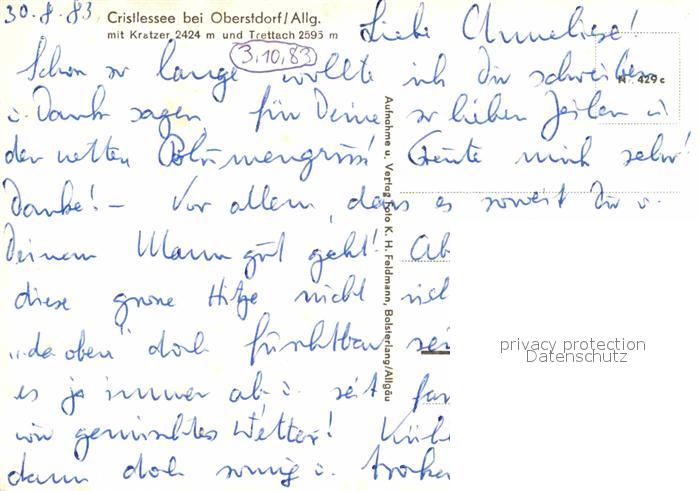 30.8.83
Cristlessee bei Oberstdorf/Allg.
mit Kratzer 2424 m und Trettach 2595 m
3.10.83
Liebe Anneliese!
Schon so lange wollte ich Dir schreiben
N. 429 c
u. Dank sagen für Deine so lieben Zeilen u.
den netten Blumengruß! Freute mich sehr!
Danke! – Vor allem, dass es soweit Dir u.
Deinem Mann gut geht! Ab
diese grosse Hitze nicht
"da oben" doch furchtbar sei
es ja immer ab u. seit
wir gemischtes Wetter! Kühl
dann doch sonnig u. trocken
Aufnahme u. Verlag Foto K. H. Feldmann, Bolsterlang/Allgäu
privacy protection
Datenschutz